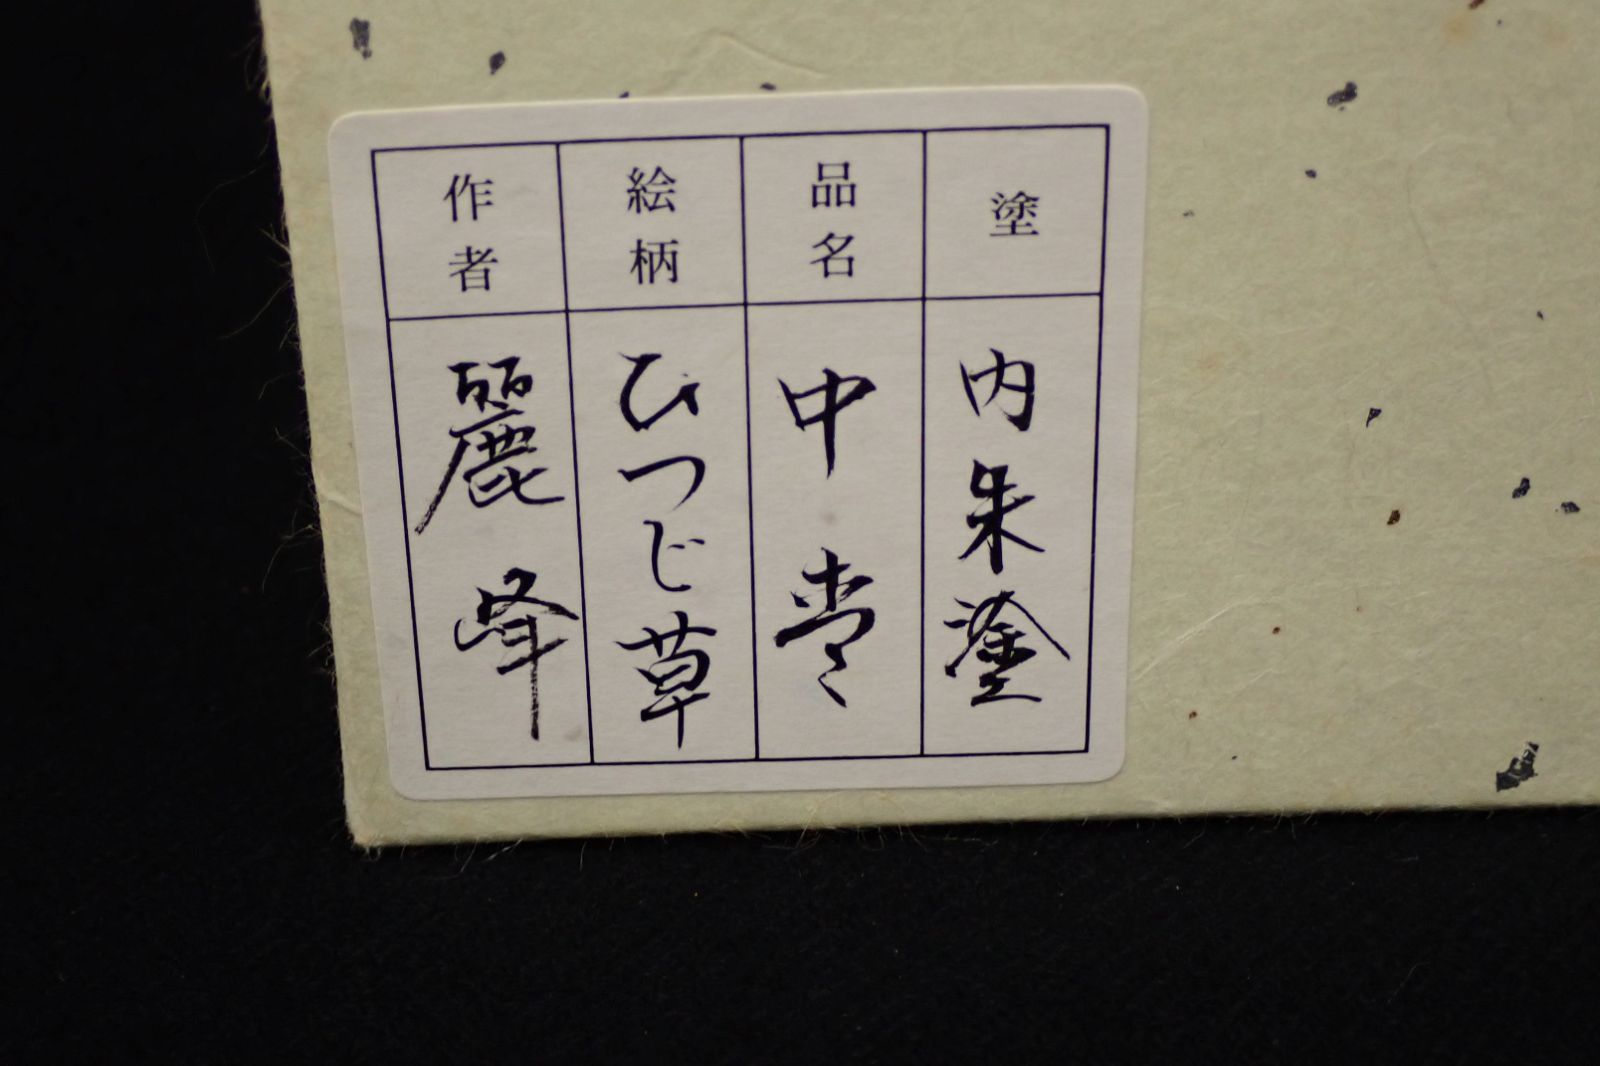 塗
内朱塗
品名
中棗
絵柄
ひつじ草
作者
麗峰